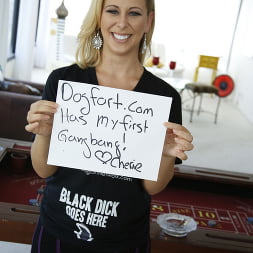 Dogfart.com
Has my first
Gangbang!
♡Cherie
BLACK DICK
GOES HERE